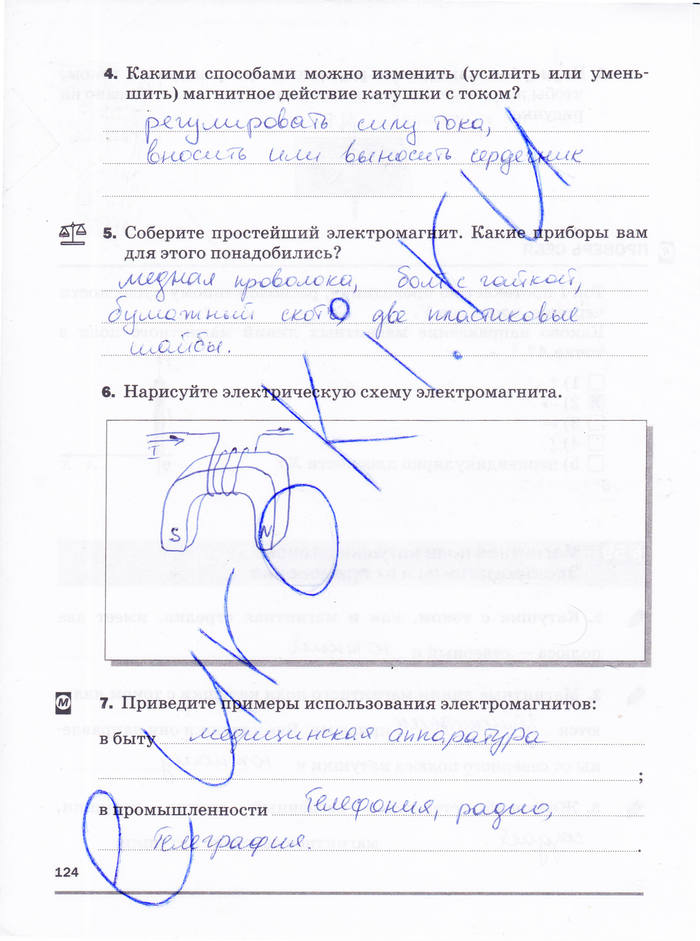 4. Какими способами можно изменить (усилить или умень-
шить) магнитное действие катушки с током?
регулировать силу тока,
вносить или выносить сердечник
5. Соберите простейший электромагнит. Какие приборы вам
для этого понадобились?
медная проволока, болт с гайкой,
бумажный скотч, две пластиковые
шайбы.
6. Нарисуйте электрическую схему электромагнита.
I
S N
М
7. Приведите примеры использования электромагнитов:
в быту медицинская аппаратура
;
в промышленности телефония, радио,
телеграфия.
124